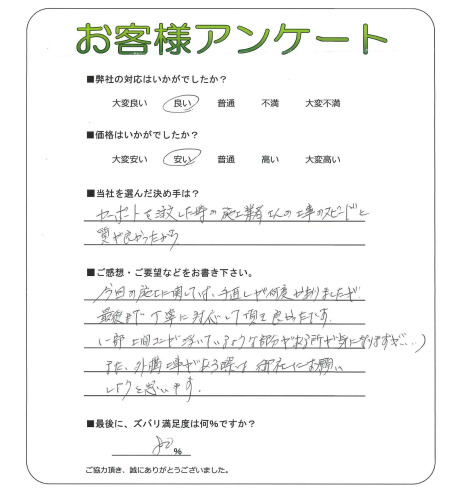 お客様アンケート
■弊社の対応はいかがでしたか？
大変良い 良い 普通 不満 大変不満
■価格はいかがでしたか？
大変安い 安い 普通 高い 大変高い
■当社を選んだ決め手は？
カーポートを注文した時の施工業者さんの工事のスピードと
質が良かったから
■ご感想・ご要望などをお書き下さい。
今回の施工に関しては、手直しが何度かありましたが
最後まで丁寧に対応して頂き良かったです。
(一部土間コンが浮いているような部分がある所が気になりますが…)
また、外構工事がある際は御社にお願い
しようと思います。
■最後に、ズバリ満足度は何％ですか？
80 %
ご協力頂き、誠にありがとうございました。